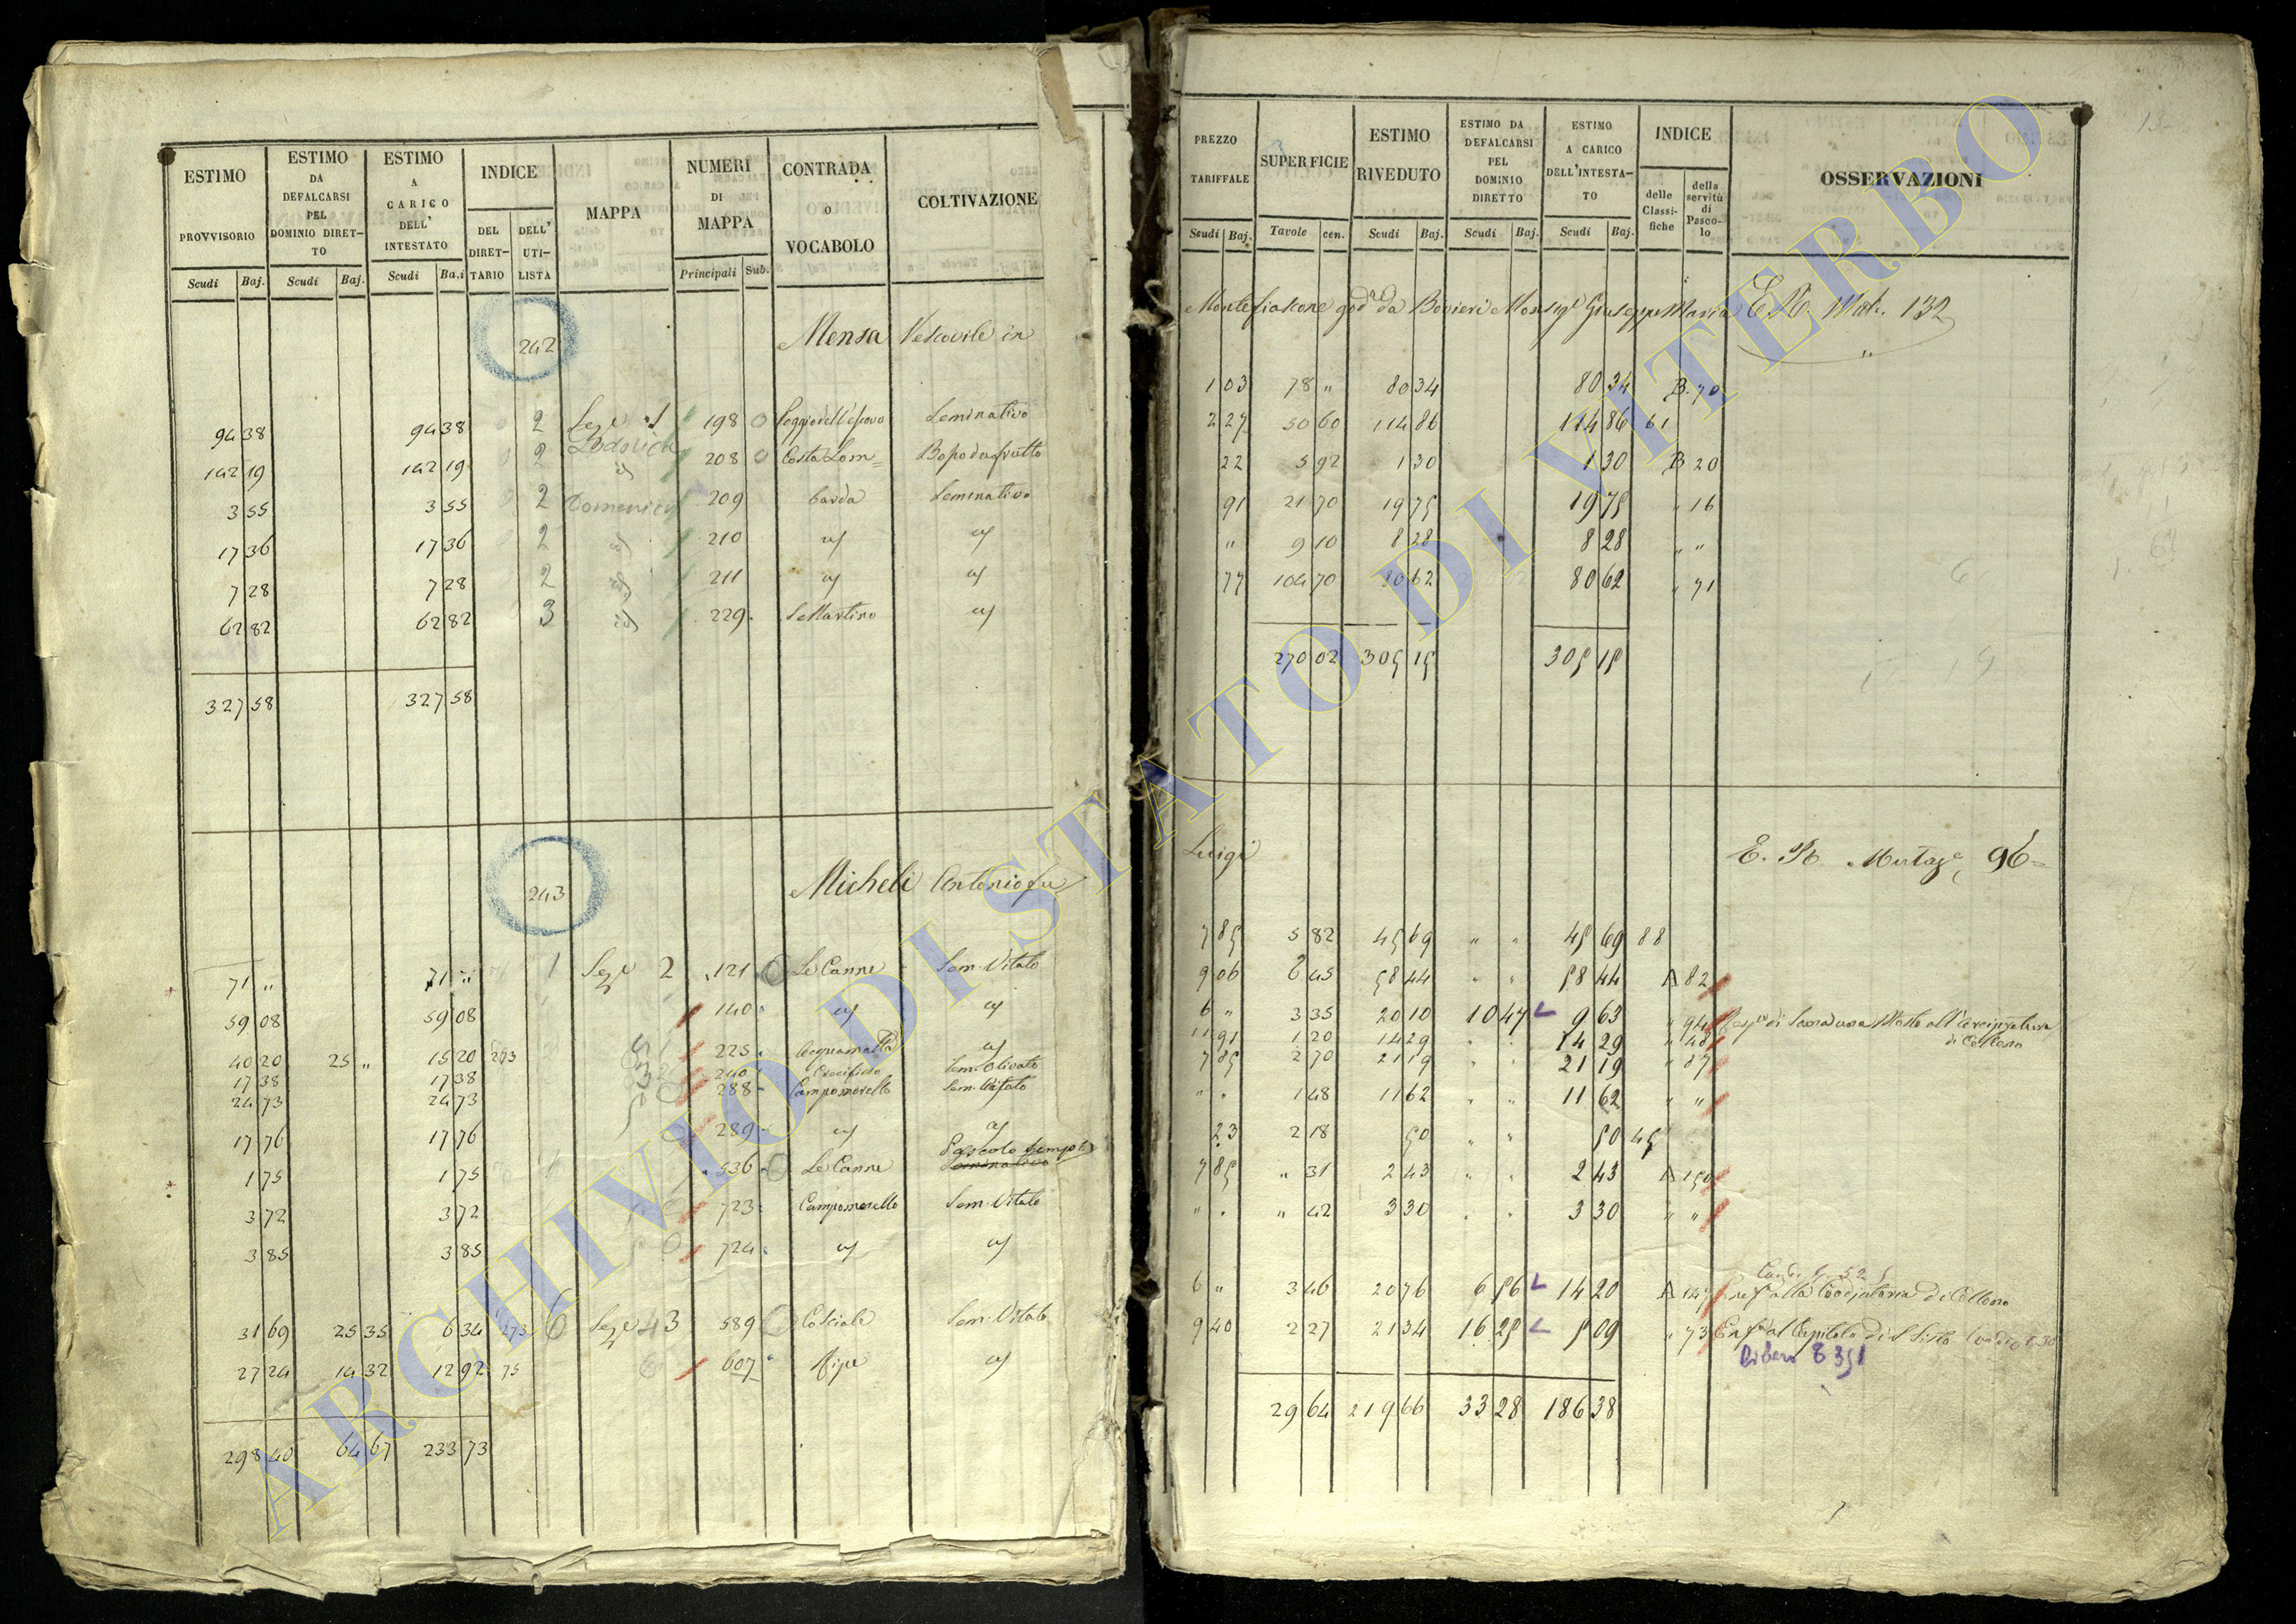 ESTIMO PROVVISORIO | ESTIMO DA DEFALCARSI PEL DOMINIO DIRETTO | ESTIMO A CARICO DELL' INTESTATO | INDICE | MAPPA | NUMERI DI MAPPA | CONTRADA O VOCABOLO | COLTIVAZIONE
Scudi Baj. | Scudi Baj. | Scudi Ba.i | DEL DIRETTARIO | DELL' UTILISTA | Principali Sub.
242 Mensa Vescovile in
94 38 | 94 38 | 2 | Seze 1 | 198 | Poggio dell'Vescovo | Seminativo
Lodovica
142 19 | 142 19 | 2 | 208 | Costa Lom= | Bo
3 55 | 3 55 | 2 | 209 | Carda | Seminativo
17 36 | 17 36 | 2 | 210
7 28 | 7 28 | 2 | 211
62 82 | 62 82 | 3 | 229 | S Martino
327 58 | 327 58
243 Micheli Antonio fu
71 " | 71 " | 1 | Seze 2 | 121 | Le Canne | Sem. Vitato
59 08 | 59 08 | 140
40 20 | 25 " | 15 20 | 273 | 225 | Acquamatta
17 38 | 17 38 | 240 | Crocifisso | Sem. Olivato
24 73 | 24 73 | 288 | Campomorello | Sem. Vitato
17 76 | 17 76 | 289
1 75 | 1 75 | 536 | Le Canne | Pascolo Semp
Seminativo
3 72 | 3 72 | 723 | Campomorello | Sem. Vitato
3 85 | 3 85 | 724
31 69 | 25 35 | 6 34 | 273 | 6 | Seze 3 | 589 | Casciale | Sem. Vitato
27 24 | 14 32 | 12 92 | 75 | 607 | Ripe
298 40 | 64 67 | 233 73
PREZZO TARIFFALE | SUPERFICIE | ESTIMO RIVEDUTO | ESTIMO DA DEFALCARSI PEL DOMINIO DIRETTO | ESTIMO A CARICO DELL'INTESTATO | INDICE | OSSERVAZIONI
Scudi Baj. | Tavole cen. | Scudi Baj. | Scudi Baj. | Scudi Baj. | delle Classifiche | della servitù di Pascolo
Montefiascone god da Bovieri Monsig Giuseppe Maria E. R. Mat. 132
1 03 | 78 " | 80 34 | 80 34 | B. 70
2 27 | 50 60 | 114 86 | 114 86 | 61
22 | 5 92 | 1 30 | 1 30 | B 20
91 | 21 70 | 19 75 | 19 75 | " 16
" | 9 10 | 8 28 | 8 28 | " "
77 | 104 70 | 80 62 | 80 62 | " 71
270 02 | 305 15 | 305 15
Luigi E. R. 96=
7 85 | 5 82 | 45 69 | " " | 45 69 | 88
9 06 | 6 45 | 58 44 | " " | 58 44 | A 82
6 " | 3 35 | 20 10 | 10 47 | 9 63 | " 94
11 91 | 1 20 | 14 29 | " " | 14 29 | " 48
di Celleno
7 85 | 2 70 | 21 19 | " " | 21 19 | " 87
" " | 1 48 | 11 62 | " " | 11 62 | " "
23 | 2 18 | 50 | " " | 50 | 45
7 85 | " 31 | 2 43 | " " | 2 43 | A 150
" " | " 42 | 3 30 | " " | 3 30 | " "
6 " | 3 46 | 20 76 | 6 56 | 14 20 | A 145 | alla Coadjutoria di Celleno
9 40 | 2 27 | 21 34 | 16 25 | 5 09 | " 73 | Enf al Capitolo di S Sisto
29 64 | 219 66 | 33 28 | 186 38
ARCHIVIO DI STATO DI VITERBO